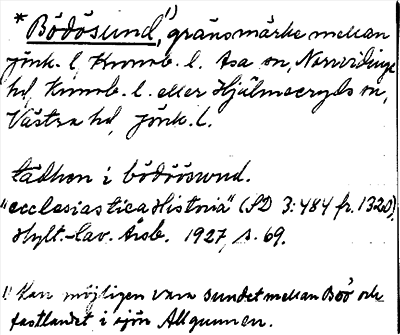 * Bödösund,¹⁾ gränsmärke mellan
Jönk. l., Kronob. l. Asa sn, Norrvidinge
hd, Kronob. l. eller Hjälmseryds sn,
Västra hd, Jönk. l.
tädhon i bödöösund.
"ecclesiastica Historia" (SD 3:484 fr. 1320).
Hylt.-Cav. Årsb. 1927, s. 69.
¹⁾ Kan möjligen vara sundet mellan Boö och
fastlandet i sjön Allgunnen.